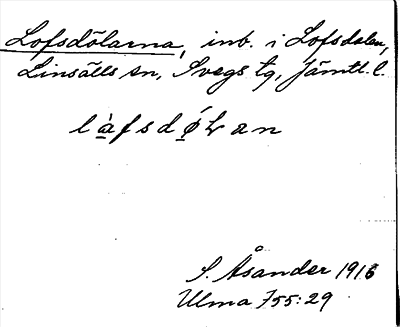 Lofsdölarna, inb. i Lofsdalen,
Linsälls sn, Svegs tg, Jämtl. l.
làfsdǿLan
S. Åsander 1916
Ulma 755:29